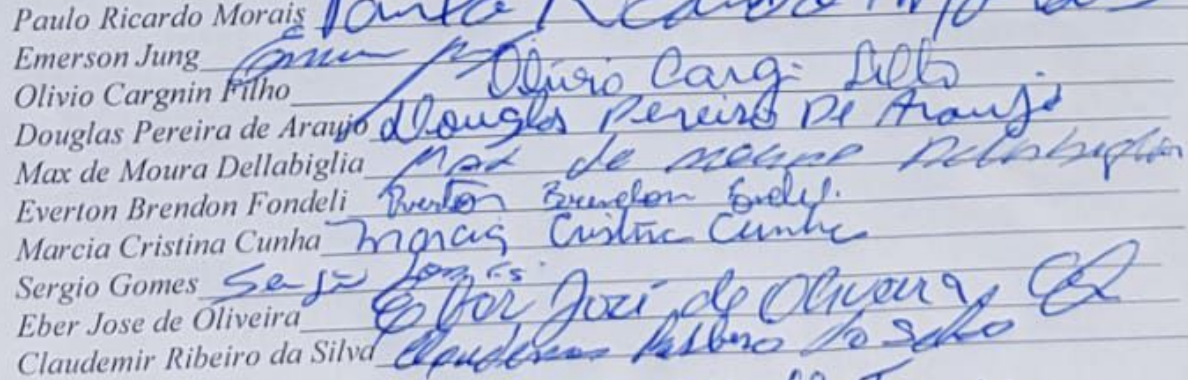 Paulo Ricardo Morais Paulo Ricardo Morais
Emerson Jung
Olivio Cargnin Filho Olivio Cargn Filho
Douglas Pereira de Araujo Douglas Pereira De Araujo
Max de Moura Dellabiglia Max de Moura Dellabiglia
Everton Brendon Fondeli Everton Brendon Fondeli
Marcia Cristina Cunha Marcia Cristina Cunha
Sergio Gomes Sergio Gomes
Eber Jose de Oliveira Eber José de Oliveira
Claudemir Ribeiro da Silva Claudemir Ribeiro